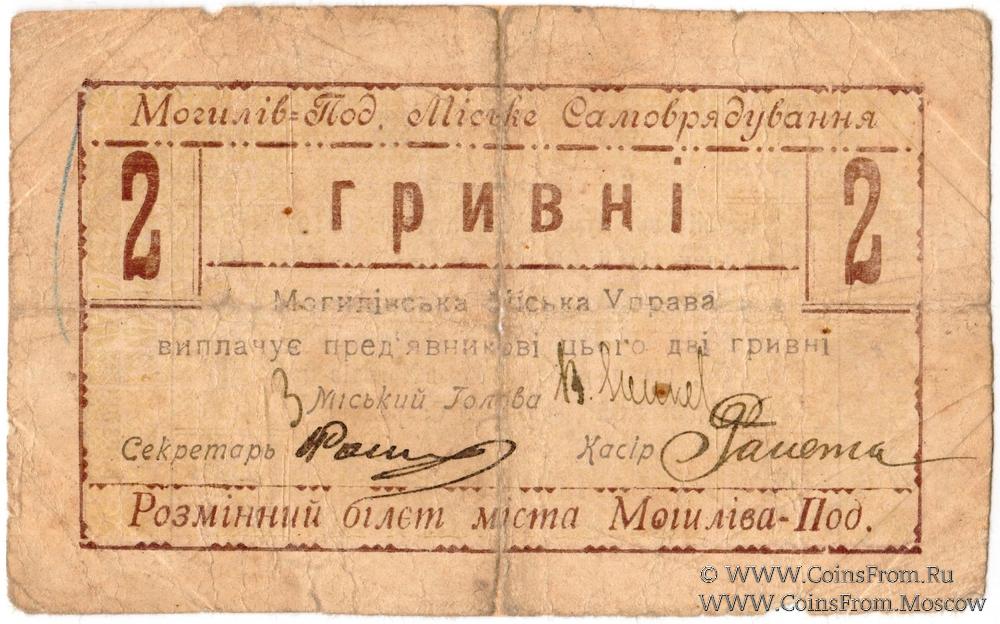 Могилів=Под. Міське Самоврядування
2 гривні 2
Могилівська Міська Управа
виплачує пред'явникові цього дві гривні
З Міський Голова
Секретарь Касір
Розмінний білєт міста Могиліва-Под.
© WWW.CoinsFrom.Ru
WWW.CoinsFrom.Moscow